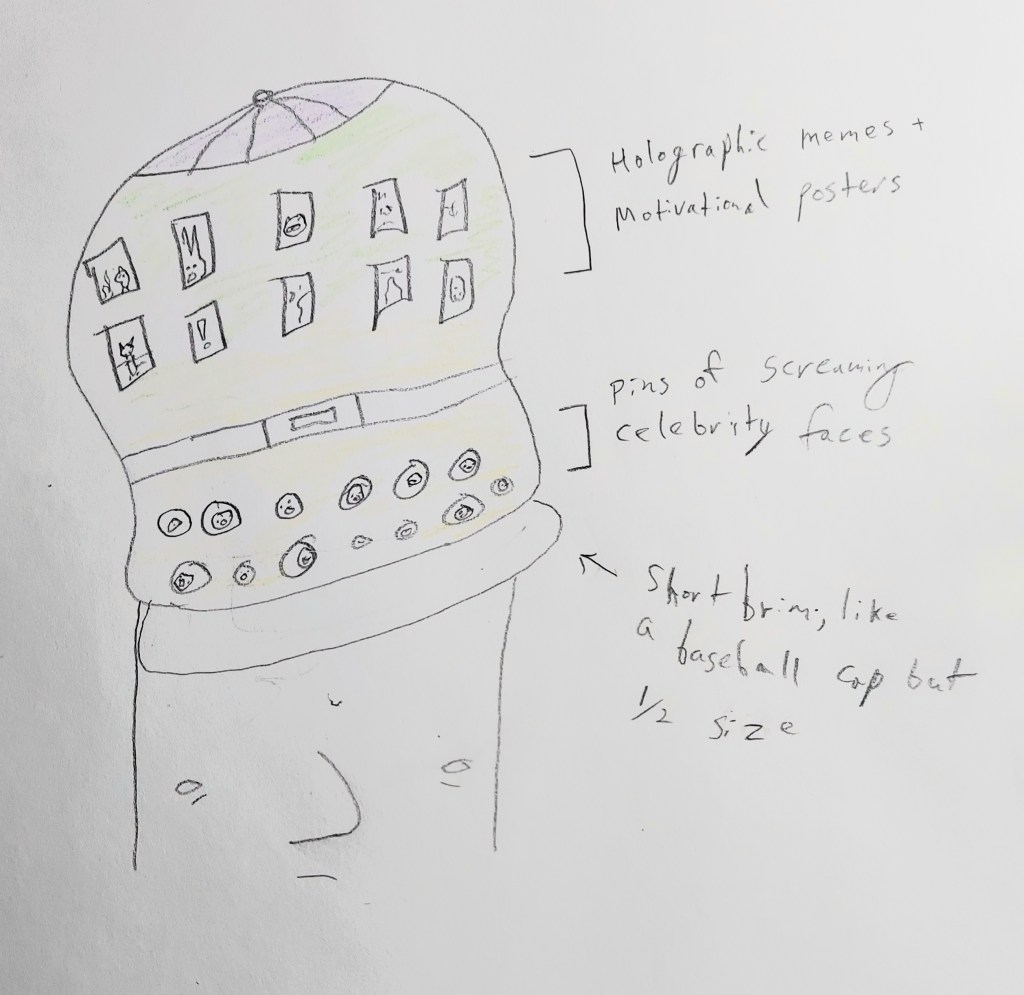 Holographic memes +
Motivational posters
pins of screaming
celebrity faces
Short brim, like
a baseball cap but
1/2 size
!